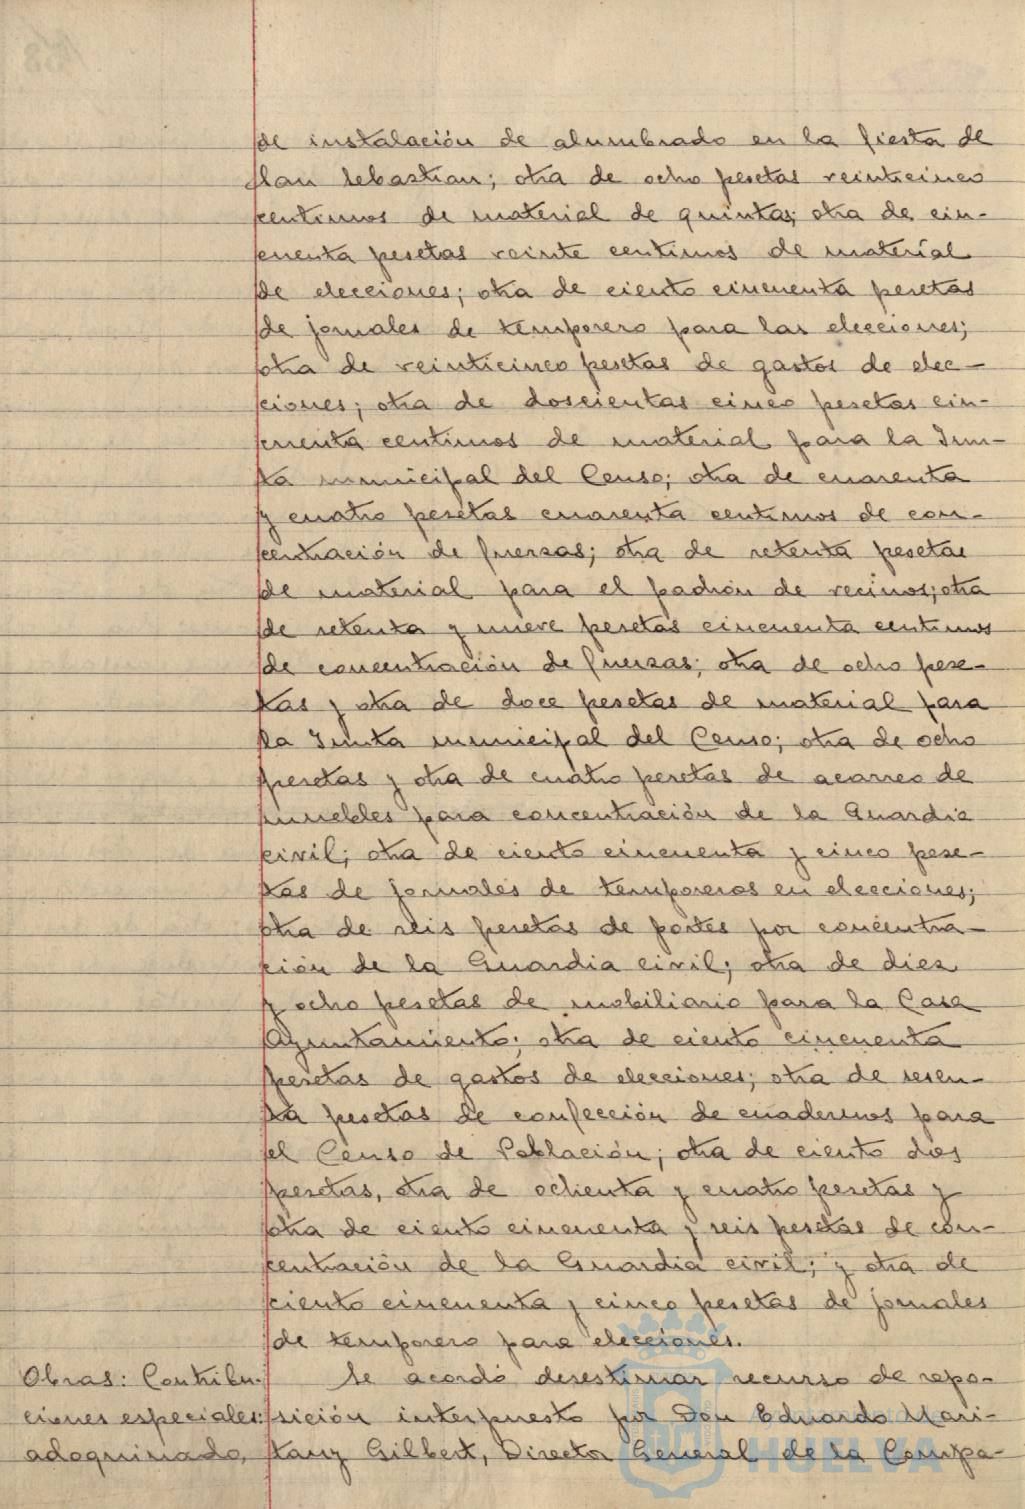 de instalación de alumbrado en la fiesta de
San Sebastian; otra de ocho pesetas veinticinco
centimos de material de quintas; otra de cin-
cuenta pesetas veinte centimos de material
de elecciones; otra de ciento cincuenta pesetas
de jornales de temporero para las elecciones;
otra de veinticinco pesetas de gastos de elec-
ciones; otra de doscientas cinco pesetas cin-
cuenta centimos de material para la Jun-
ta municipal del Censo; otra de cuarenta
y cuatro pesetas cuarenta centimos de con-
centración de fuerzas; otra de setenta pesetas
de material para el padrón de vecinos; otra
de setenta y nueve pesetas cincuenta centimos
de concentración de fuerzas; otra de ocho pese-
tas y otra de doce pesetas de material para
la Junta municipal del Censo; otra de ocho
pesetas y otra de cuatro pesetas de acarreo de
muebles para concentración de la Guardia
civil; otra de ciento cincuenta y cinco pese-
tas de jornales de temporeros en elecciones;
otra de seis pesetas de portes por concentra-
ción de la Guardia civil; otra de diez
y ocho pesetas de mobiliario para la Casa
Ayuntamiento; otra de ciento cincuenta
pesetas de gastos de elecciones; otra de sesen-
ta pesetas de confección de cuadernos para
el Censo de Población; otra de ciento dos
pesetas, otra de ochenta y cuatro pesetas y
otra de ciento cincuenta y seis pesetas de con-
centración de la Guardia civil; y otra de
ciento cincuenta y cinco pesetas de jornales
de temporero para elecciones.
Obras: Contribu-
ciones especiales:
adoquinado,
Se acordó desestimar recurso de repo-
sición interpuesto por Don Eduardo Mari-
tany Gilbert, Director General de la Compa-
HUELVA